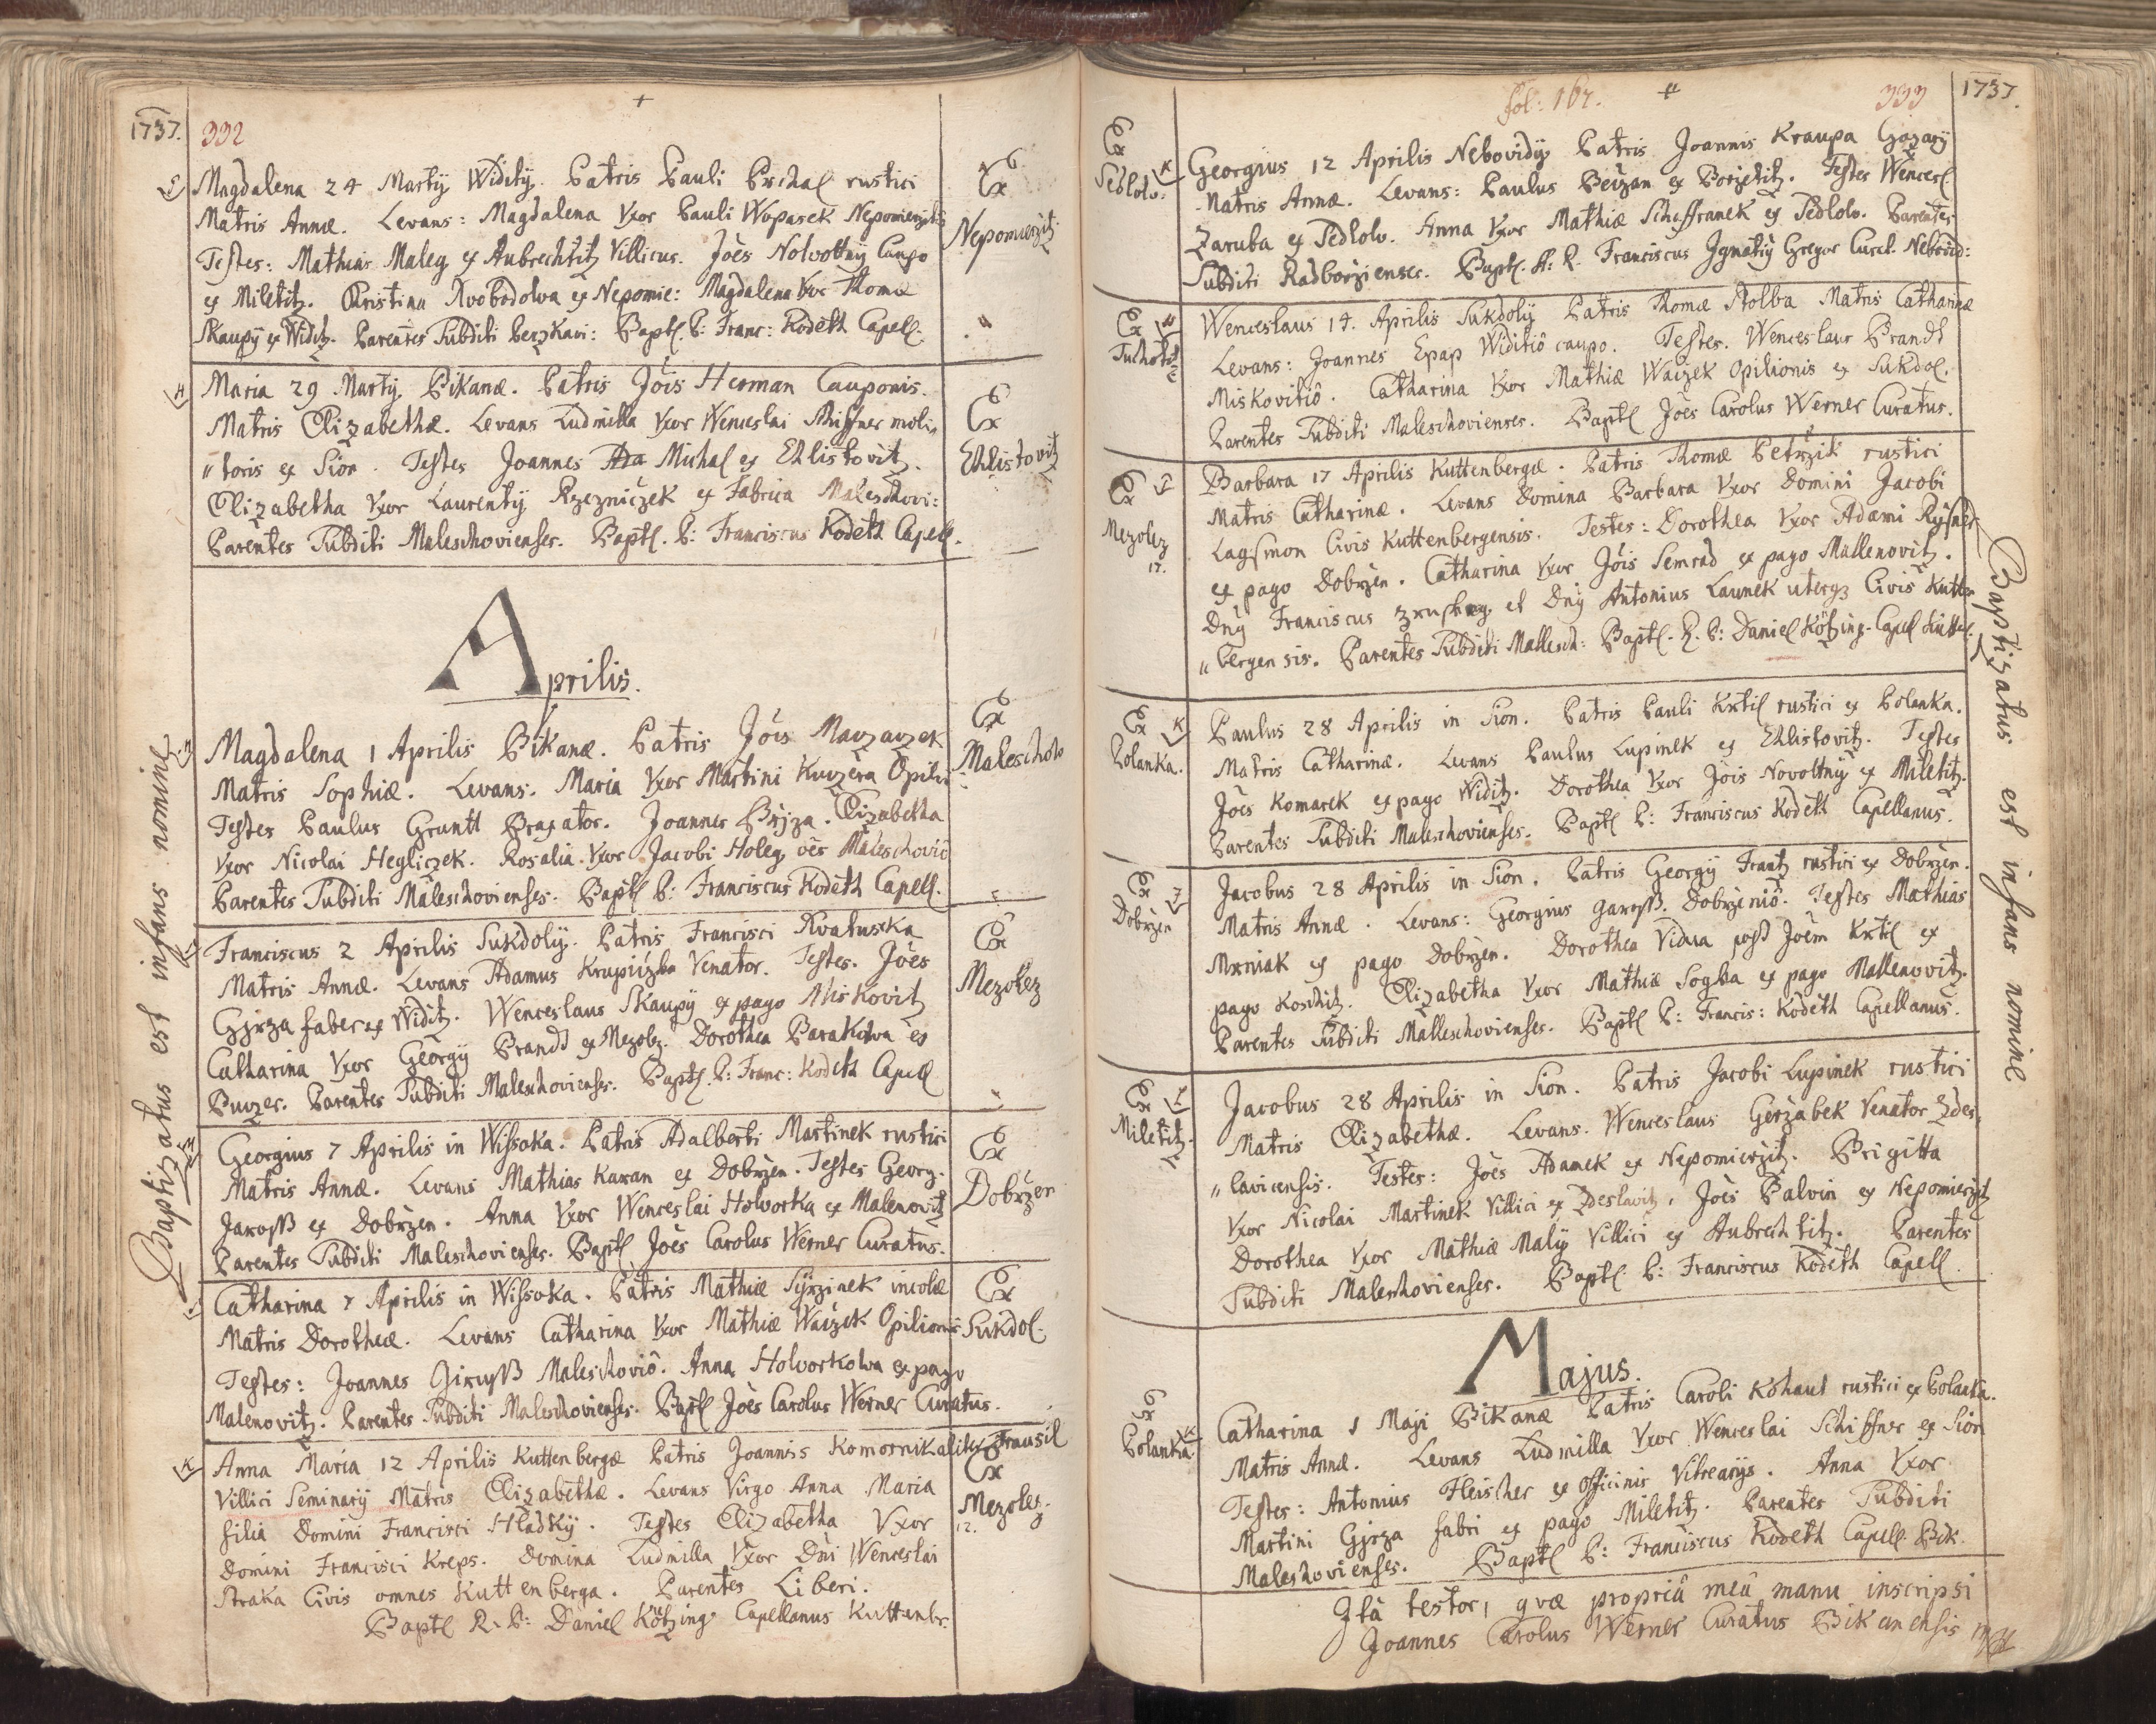 1737. 332
Magdalena 24 Martÿ Widitÿ. Patris Pauli Prchal rustici
Matris Annæ. Levans: Magdalena Vxor Pauli Wopasek
Testes: Mathias Maleg ex Aubrechtitz Villicus. Joês Nowottnÿ Caupo
ex Miletitz. Christina Swobodowa ex Nepomie: Magdalena Vxor Thomæ
Skaupÿ ex Widitz. Parentes Subditi Baptl. P: Franc: Kodeth Capell.
Ex
Nepomierzitz.
Maria 29 Martÿ Bikanæ. Patris Jôis Herman Cauponis.
Matris Elizabethæ. Levans Ludmilla Vxor Wenceslai Schiffner moli„
„toris ex Sion. Testes Joannes Michal ex Chlistovitz.
Elizabetha Vxor Laurentÿ Rzezniczek ex Fabrica Maleschovi:
Parentes Subditi Maleschovienses. Baptl. P: Franciscus Kodeth Capell.
Ex
Chlistovitz
Aprilis.
Magdalena 1 Aprilis Bikanæ. Patris Jôis
Matris Sophiæ. Levans. Maria Vxor Martini Kuczera Opilio
Testes Paulus Gruntt Braxator. Joannes Brÿza. Elizabetha
Vxor Nicolai Hegliczek. Rosalia Vxor Jacobi Holeg, oês Maleschoviô
Parentes Subditi Maleschovienses. Baptl P: Franciscus Kodeth Capell.
Ex
Maleschow
Franciscus 2 Aprilis Sukdolÿ. Patris Francisci Kvatuska
Matris Annæ. Levans Adamus Krupiczka Venator. Testes. Joês
Gÿrza faber ex Widitz. Wenceslaus Skaupÿ ex pago Miskovitz
Catharina Vxor Georgÿ Brandl ex Mezolez. Dorothea Barakowa ex
Parentes Subditi Maleschovienses. Baptl. P: Franc: Kodeth Capell
Ex
Mezolez
Georgius 7 Aprilis in Wissoka. Patris Adalberti Martinek rustici
Matris Annæ. Levans Mathias Karan ex Dobrzen. Testes Georg.
Jarosch ex Dobrzen. Anna Vxor Wenceslai Howorka ex Malenovitz
Parentes Subditi Maleschovienses. Baptl Joês Carolus Werner Curatus.
Ex
Dobrzen
Catharina 7 Aprilis in Wissoka. Patris Mathiæ Sÿrzinek incolæ
Matris Dorotheæ. Levans Catharina Vxor Mathiæ Waizek Opilionis
Testes: Joannes Maleschoviô. Anna Howorkowa ex pago
Malenovitz. Parentes Subditi Maleschovienses. Baptl Joês Carolus Werner Curatus.
Ex
Sukdol.
Anna Maria 12 Aprilis Kuttenbergæ Patris Joannis Komornik aliter Trausil
Villici Seminarÿ Matris Elizabethæ. Levans Virgo Anna Maria
filia Domini Francisci Hladkÿ. Testes Elizabetha Vxor
Domini Francisci Kreps. Domina Ludmilla Vxor Dni Wenceslai
Straka Civis omnes Kuttenberga. Parentes Liberi.
Baptl R. P: Daniel Kötzing Capellanus Kuttenbr.
Ex
Mezolez.
12.
Baptizatus est infans nomine
fol: 167. 333 1737.
Ex
Sedlow:
Georgius 12 Aprilis Nebovidÿ Patris Joannis Kraupa
Matris Annæ. Levans: Paulus Beizan ex Borzetitz. Testes Wencesl.
Zaruba ex Sedlow. Anna Vxor Mathiæ Schaffranek ex Sedlow. Parentes
Subditi Radborzienses. Baptl. A: R. Franciscus Ignatiÿ Gregor Curat. Nebovid:
Ex
Wenceslaus 14. Aprilis Sukdolÿ Patris Thomæ Stolba Matris Catharinæ
Levans: Joannes Epap Widitiô caupo. Testes. Wenceslaus Brandl
Miskovitiô. Catharina Vxor Mathiæ Waizek Opilionis ex Sukdol.
Parentes Subditi Maleschovienses. Baptl Joês Carolus Werner Curatus.
Ex
Mezolez
17.
Barbara 17 Aprilis Kuttenbergæ. Patris Thomæ Petrzik rustici
Matris Catharinæ. Levans Domina Barbara Vxor Domini Jacobi
Lagsmon Civis Kuttenbergensis. Testes: Dorothea Vxor Adami
ex pago Dobrzen. Catharina Vxor Jôis Semrad ex pago Mallenovitz.
Dnÿ Franciscus et Dnÿ Antonius Launek uterqz Civis Kutten
„bergensis. Parentes Subditi Mallesch: Baptl. R. P: Daniel Kötzing. Capel Kutten.
Ex
Polanka.
Paulus 28 Aprilis in Sion. Patris Pauli Krtil rustici ex Polanka.
Matris Catharinæ. Levans Paulus Lupinek ex Chlistovitz. Testes
Joês Komarek ex pago Widitz. Dorothea Vxor Jôis Novottnÿ ex Miletitz.
Parentes Subditi Maleschovienses. Baptl P: Franciscus Kodeth Capellanus.
Ex
Dobrzen
Jacobus 28 Aprilis in Sion. Patris Georgÿ Frantz rustici ex Dobrzen.
Matris Annæ. Levans: Georgius Jarosch. Dobrzeniô. Testes Mathias
Mrniak ex pago Dobrzen. Dorothea Vidua post Joêm Krtil ex
pago Koschitz. Elizabetha Vxor Mathiæ Sogka ex pago Mallenovitz.
Parentes Subditi Malleschovienses. Baptl P: Francis: Kodeth Capellanus.
Ex
Miletitz.
Jacobus 28 Aprilis in Sion. Patris Jacobi Lupinek rustici
Matris Elizabethæ. Levans. Wenceslaus Gerzabek Venator Zdes„
„lavicensis. Testes: Joês Adamek ex Nepomierzitz. Brigitta
Vxor Nicolai Martinek Villici ex Zdeslavitz. Joês Balvin ex Nepomierzitz
Dorothea Vxor Mathiæ Malÿ Villici ex Aubrechtitz. Parentes
Subditi Maleschovienses. Baptl P: Franciscus Kodeth Capell.
Majus.
Ex
Polanka.
Catharina 1 Maji Bikanæ Patris Caroli Kohaut rustici ex Polanka.
Matris Annæ. Levans Ludmilla Vxor Wenceslai Schiffner ex Sion
Testes: Antonius Fleischer ex Officinis Vitrearÿs. Anna Vxor
Martini Gÿrza fabri ex pago Miletitz. Parentes Subditi
Maleschovienses. Baptl P: Franciscus Kodeth Capell. Bik.
Ita testor, quæ propriâ meâ manu inscripsi
Joannes Carolus Werner Curatus Bikanensis mp
Baptizatus est infans nomine